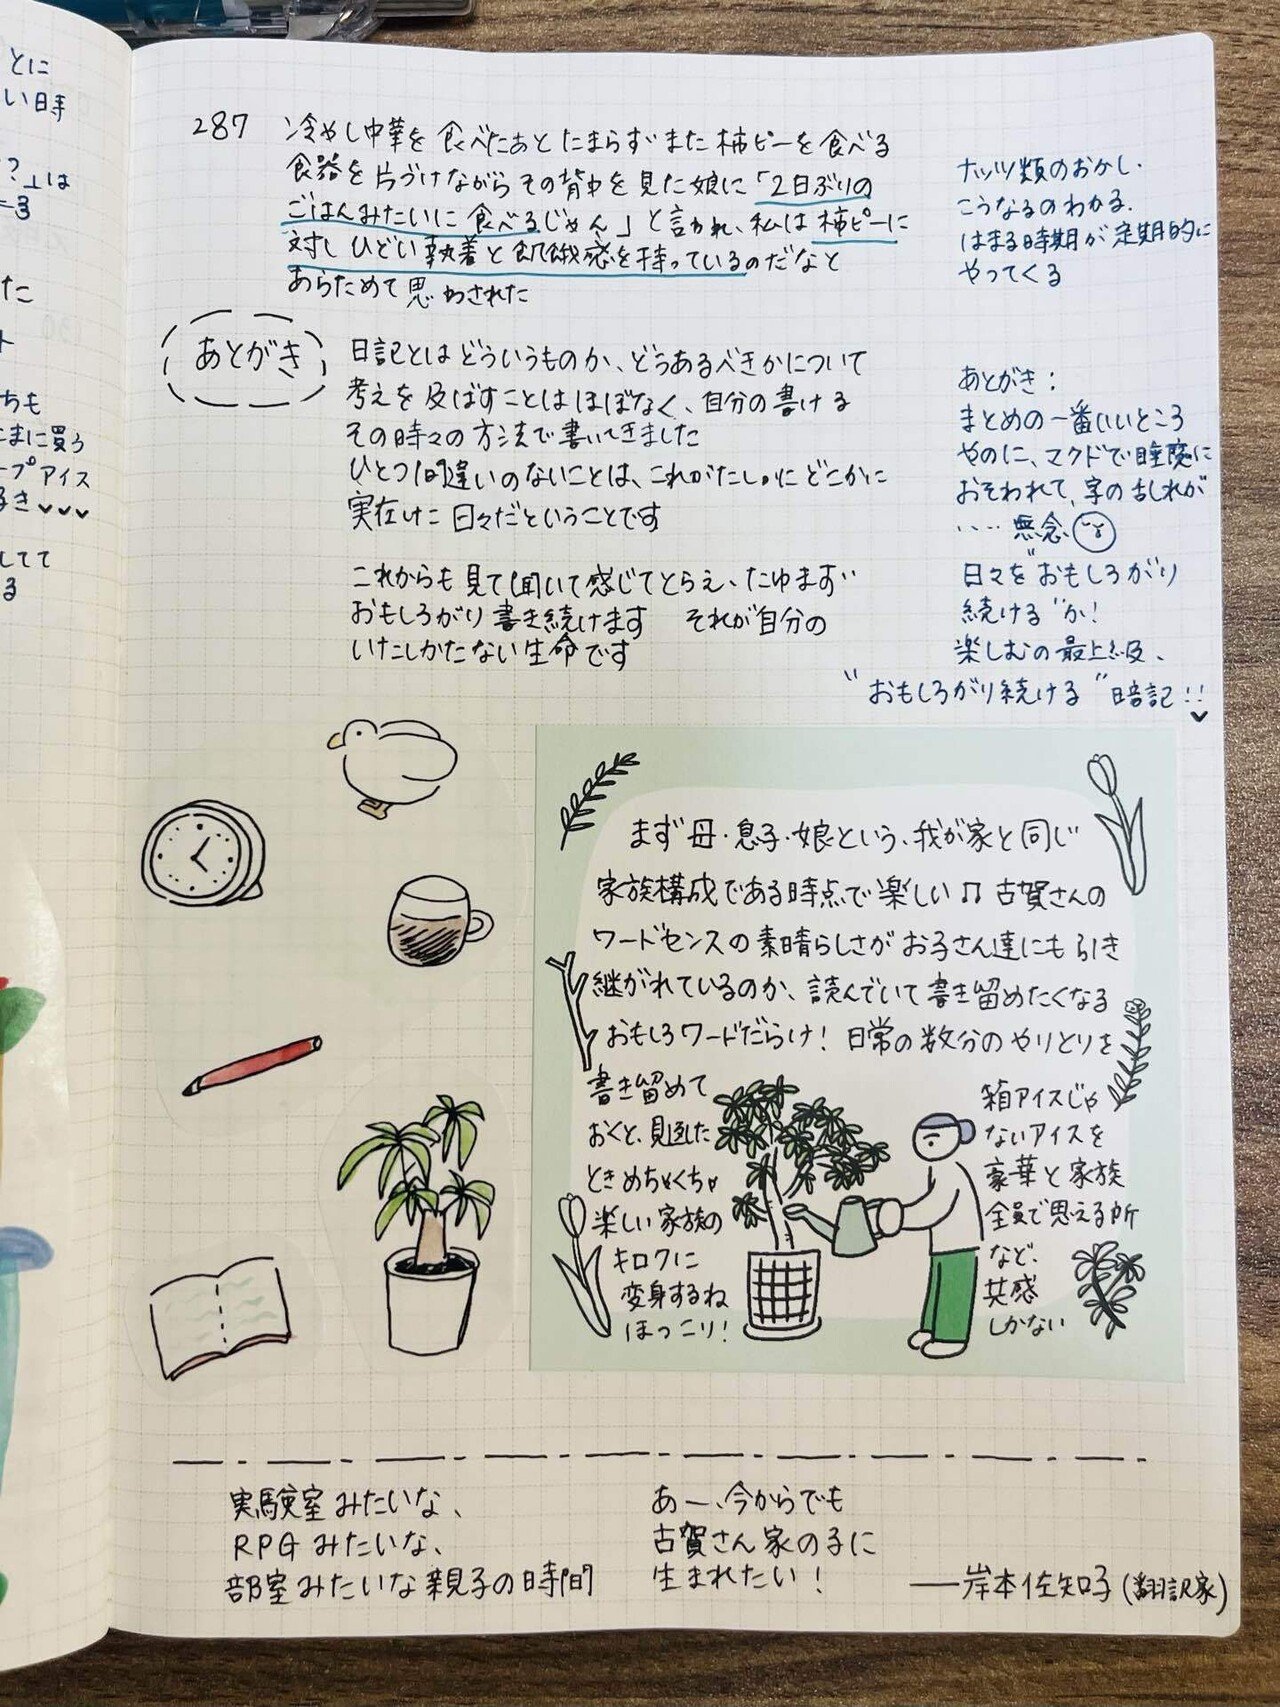 とに
い時
？」は
=3
た
ト
ちも
まに買う
ープアイス
好き
してて
る
287
冷やし中華を食べたあとたまらずまた柿ピーを食べる
食器を片づけながらその背中を見た娘に「2日ぶりの
ごはんみたいに食べるじゃん」と言われ、私は柿ピーに
対しひどい執着と飢餓感を持っているのだなと
あらためて思わされた
ナッツ類のおかし.
こうなるのわかる.
はまる時期が定期的に
やってくる
あとがき
日記とはどういうものか、どうあるべきかについて
考えを及ばすことはほぼなく、自分の書ける
その時々の方法で書いてきました
ひとつ間違いのないことは、これがたしかにどこかに
実在した日々だということです
これからも見て聞いて感じてとらえ、たゆまず
おもしろがり書き続けます　それが自分の
いたしかたない生命です
あとがき：
まとめの一番いいところ
やのに、マクドで睡魔に
おそわれて、字の乱れが
‥‥無念
日々を"おもしろがり
続ける"か!
楽しむの最上級、
"おもしろがり続ける"暗記!!
まず母・息子・娘という、我が家と同じ
家族構成である時点で楽しい♫ 古賀さんの
ワードセンスの素晴らしさがお子さん達にも引き
継がれているのか、読んでいて書き留めたくなる
おもしろワードだらけ！日常の数分のやりとりを
書き留めて
おくと、見返した
ときめちゃくちゃ
楽しい家族の
キロクに
変身するね
ほっこり！
箱アイスじゃ
ないアイスを
豪華と家族
全員で思える所
など、
共感
しかない
実験室みたいな、
RPGみたいな、
部室みたいな親子の時間
あー、今からでも
古賀さん家の子に
生まれたい！
──岸本佐知子(翻訳家)